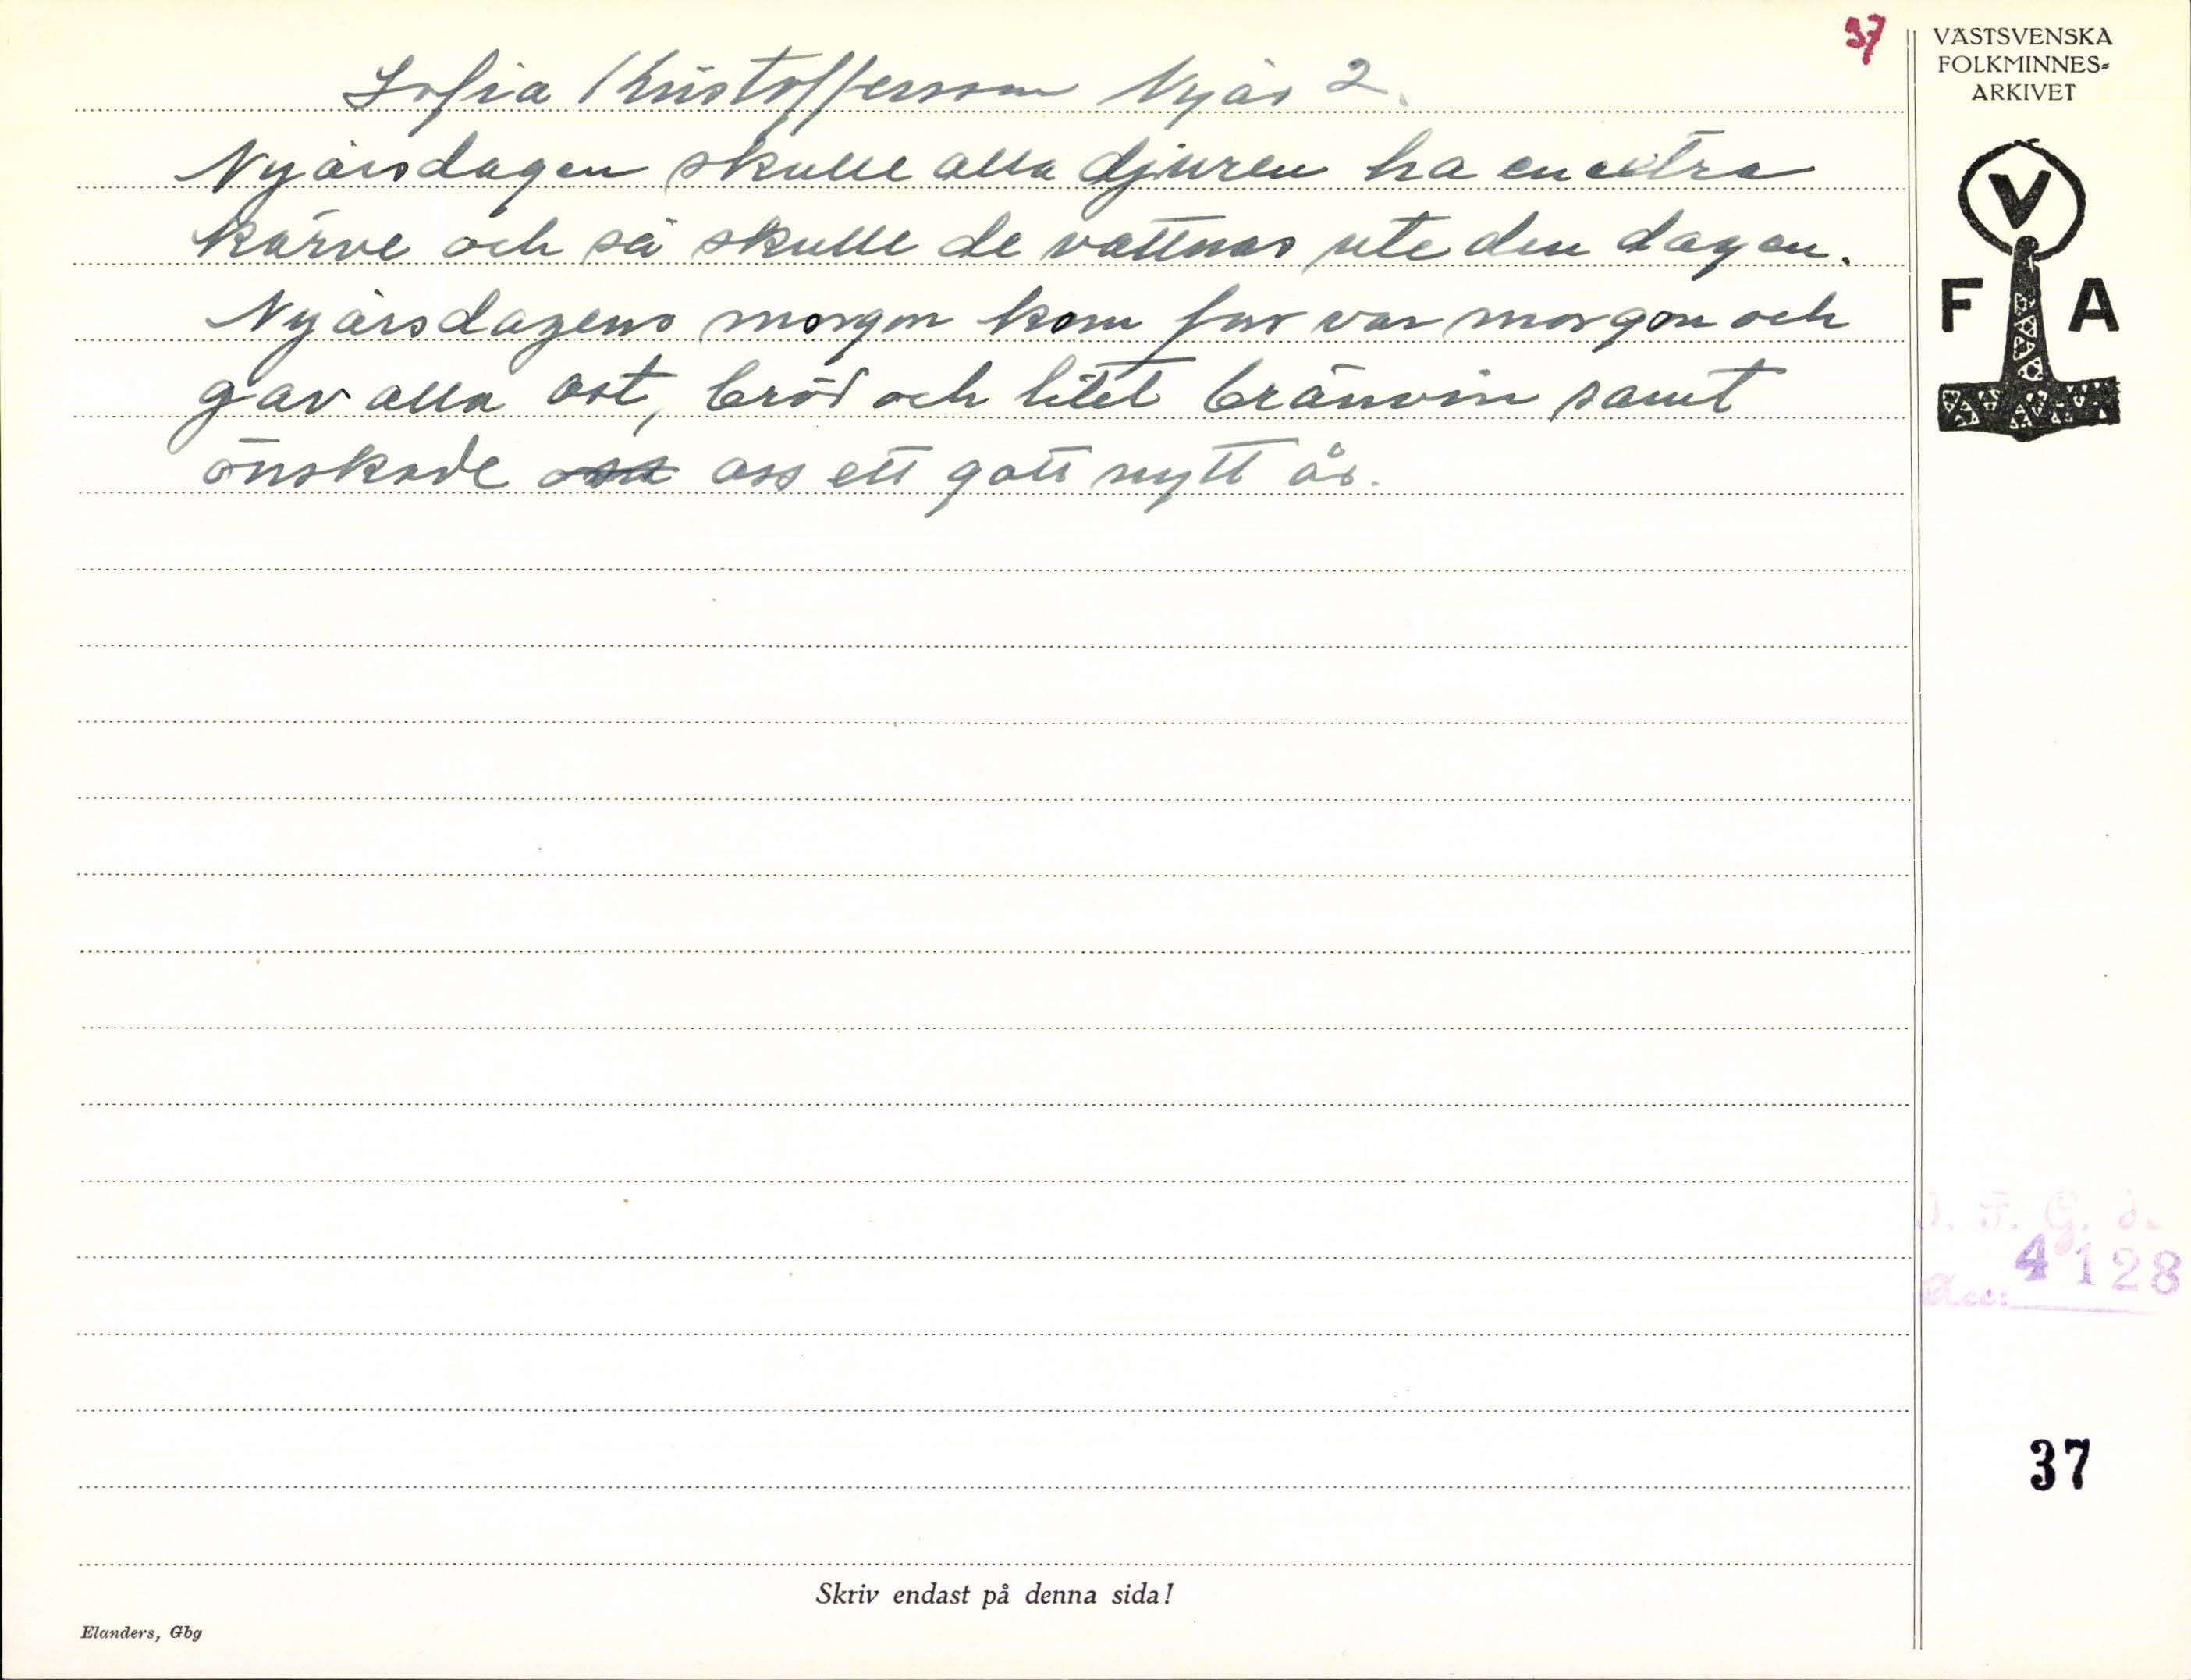 37
VÄSTSVENSKA
FOLKMINNES-
ARKIVET
V
F A
Sofia Kristoffersson Nyår 2.
Nyårsdagen skulle alla djuren ha en extra
kärve och så skulle de vattnas ute den dagen.
Nyårsdagens morgon kom far var morgon och
gav alla ost, bröd och litet bränvin samt
önskade oss ett gott nytt år.
4128
Acc:
37
Skriv endast på denna sida!
Elanders, Gbg